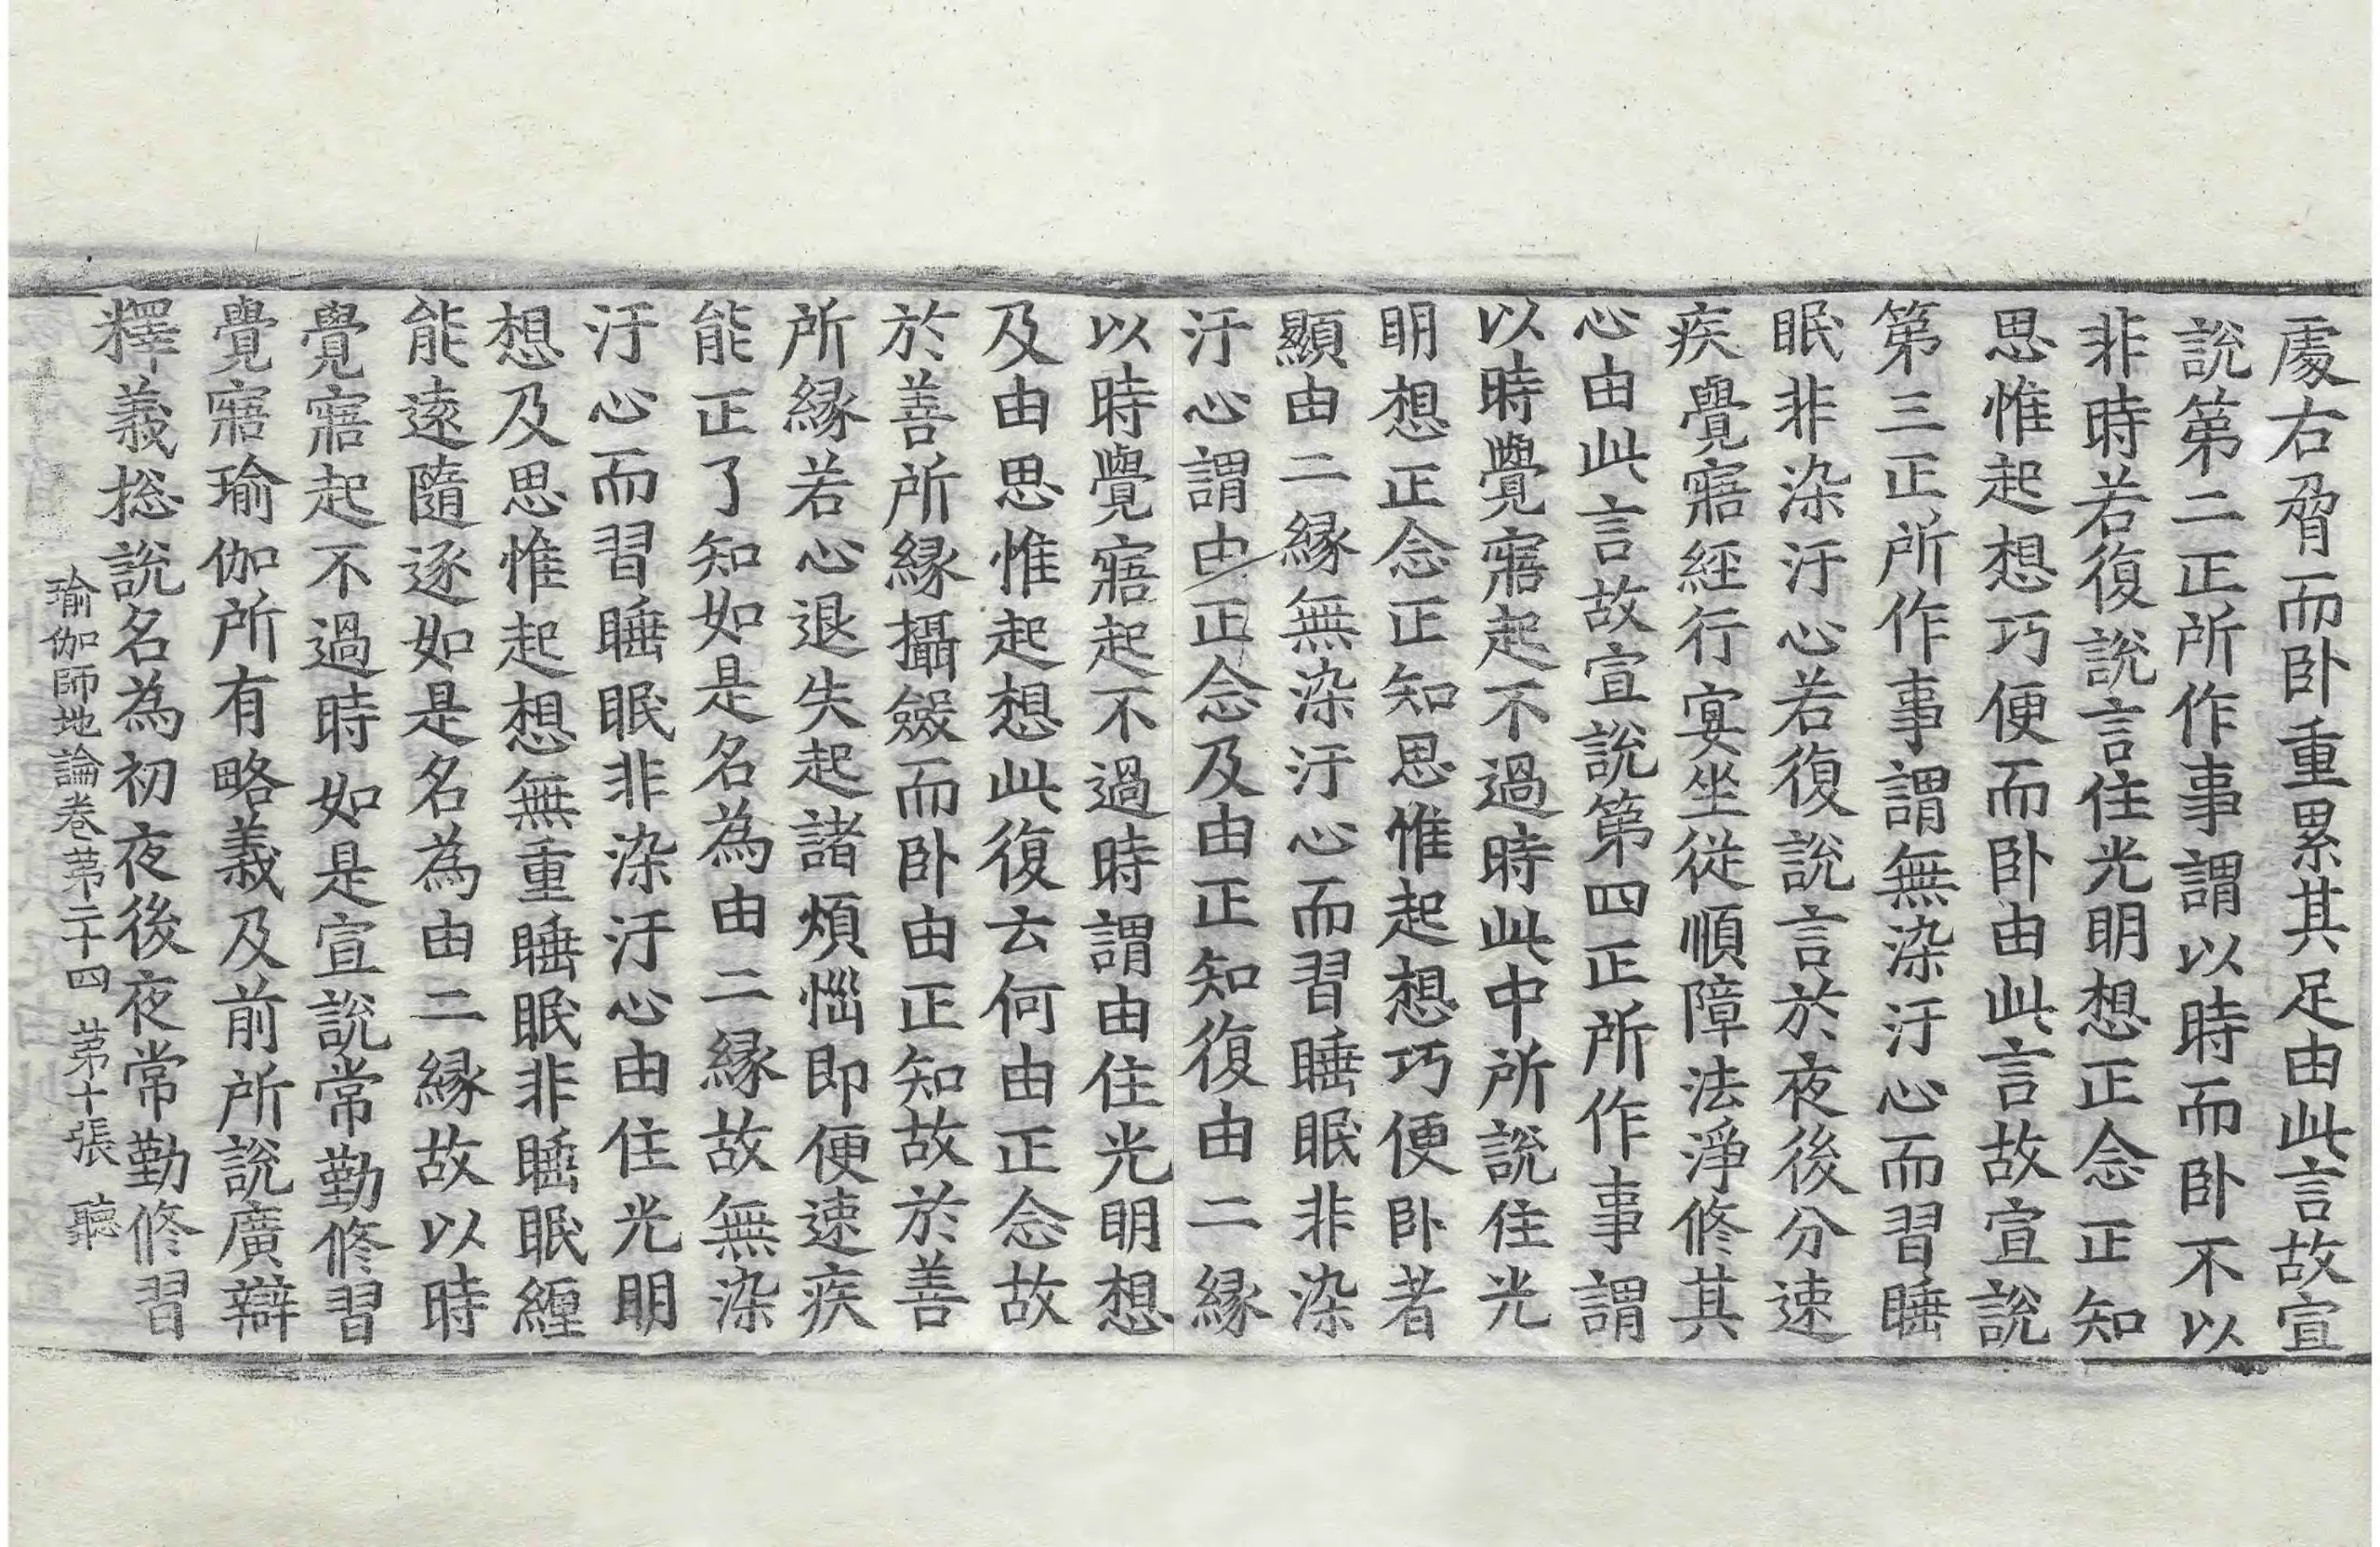 處右脅而卧重累其足由此言故宣
說第二正所作事謂以時而卧不以
非時若復說言住光明想正念正知
思惟起想巧便而卧由此言故宣說
第三正所作事謂無染汙心而習睡
眠非染汙心若復說言於夜後分速
疾覺寤經行宴坐從順障法淨修其
心由此言故宣說第四正所作事謂
以時覺寤起不過時此中所說住光
明想正念正知思惟起想巧便卧者
顯由二緣無染汙心而習睡眠非染
汙心謂由正念及由正知復由二緣
以時覺寤起不過時謂由住光明想
及由思惟起想此復云何由正念故
於善所緣攝斂而卧由正知故於善
所緣若心退失起諸煩惱即便速疾
能正了知如是名為由二緣故無染
汙心而習睡眠非染汙心由住光明
想及思惟起想無重睡眠非睡眠纏
能遠隨逐如是名為由二緣故以時
覺寤起不過時如是宣說常勤修習
覺寤瑜伽所有略義及前所說廣辯
釋義捴說名為初夜後夜常勤修習
瑜伽師地論卷苐二十四 苐十張 聽